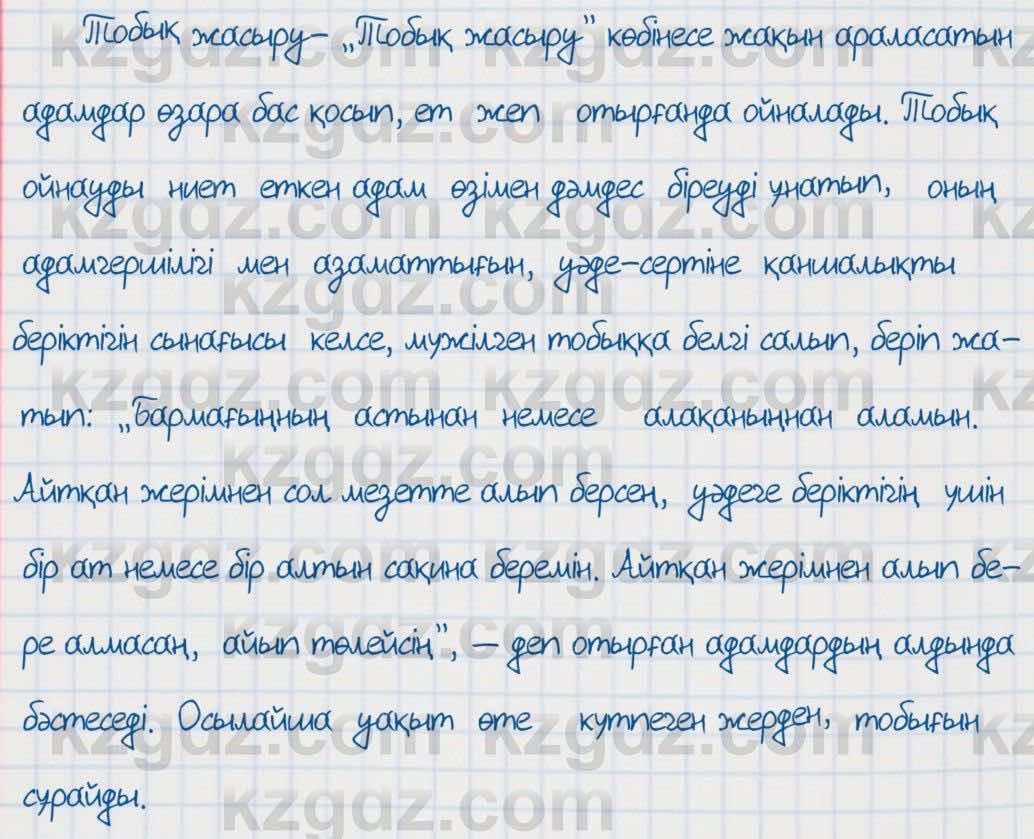 Тобық жасыру– „Тобық жасыру” көбінесе жақын араласатын
адамдар өзара бас қосып, ет жеп отырғанда ойналады. Тобық
ойнауды ниет еткен адам өзімен дәмдес біреуді ұнатып, оның
адамгершілігі мен азаматтығын, уәде-сертіне қаншалықты
беріктігін сынағысы келсе, мүжілген тобыққа белгі салып, беріп жа-
тып: „Бармағыңның астынан немесе алақаныңнан аламын.
Айтқан жерімнен сол мезетте алып берсең, уәдеге беріктігің үшін
бір ат немесе бір алтын сақина беремін. Айтқан жерімнен алып бе-
ре алмасаң, айып төлейсің”, – деп отырған адамдардың алдында
бәстеседі. Осылайша уақыт өте күтпеген жерден, тобығын
сұрайды.